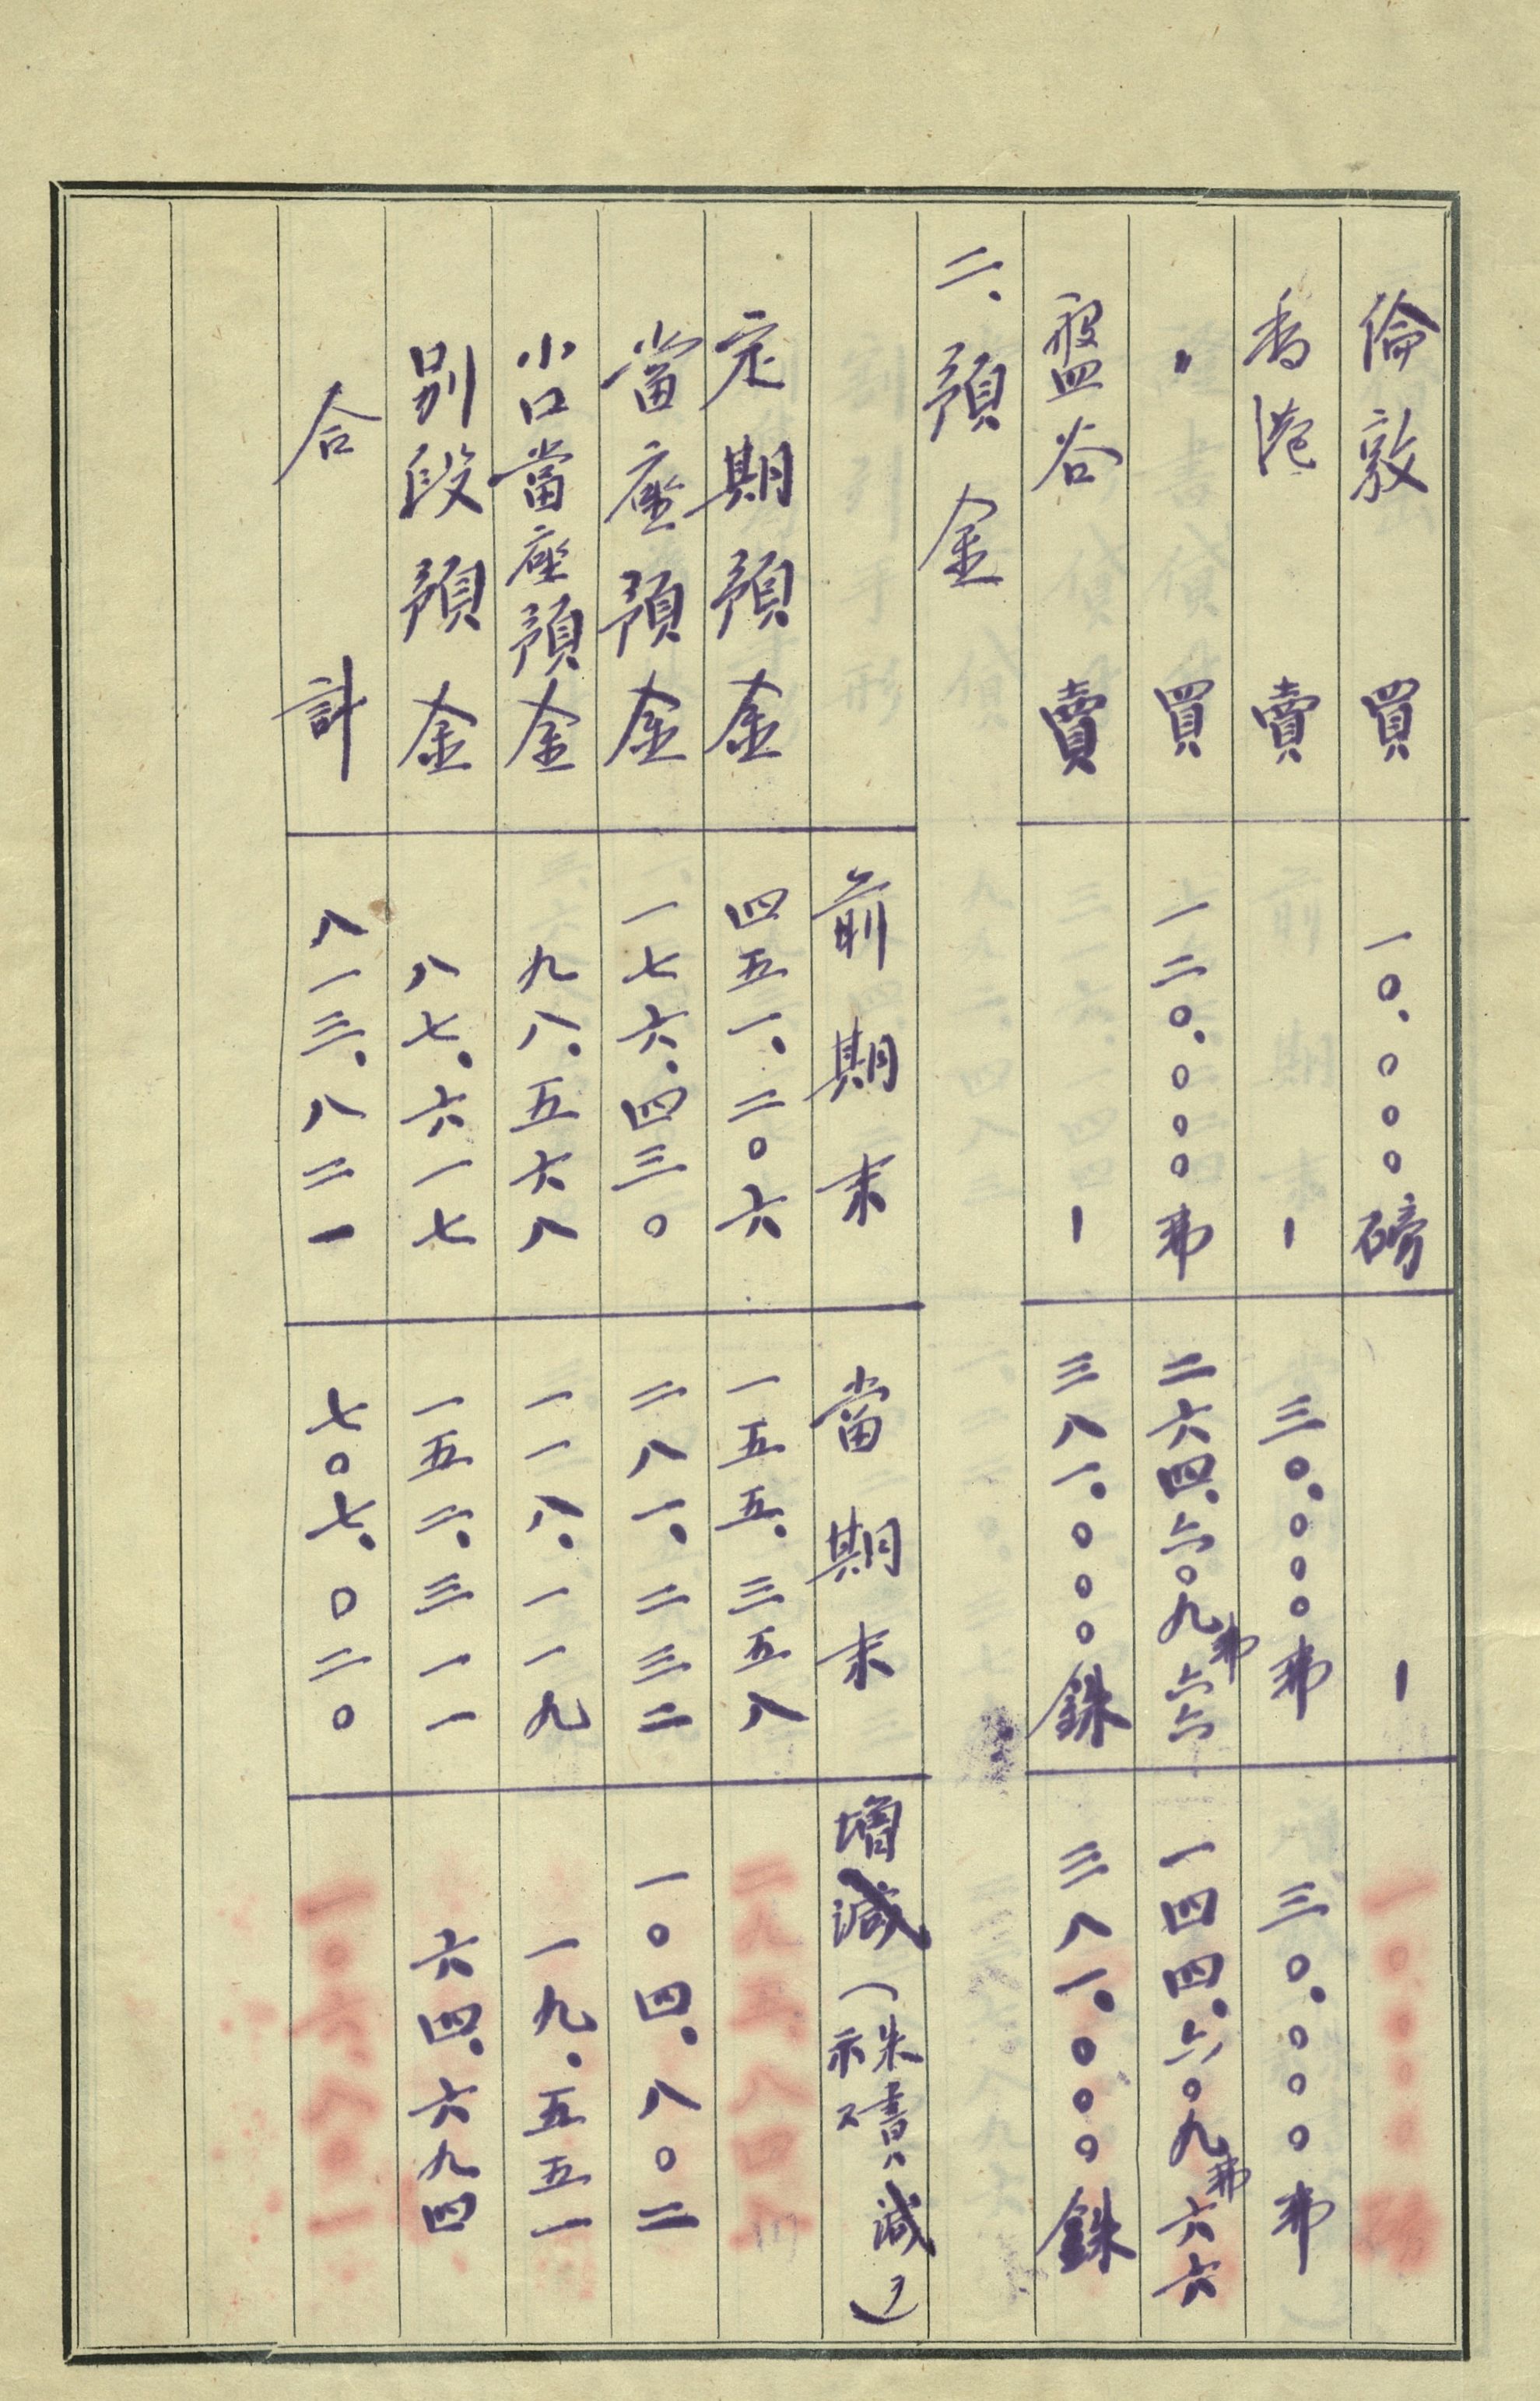 倫敦 買 一〇、〇〇〇磅 ー 一〇、〇〇〇磅
香港 賣 ー 三〇、〇〇〇弗 三〇、〇〇〇弗
〃 買 一二〇、〇〇〇弗 二六四、六〇九弗六六 一四四、六〇九弗六六
盤谷 賣 ー 三八一、〇〇〇銖 三八一、〇〇〇銖
二、預金
前期末 當期末 增減(朱書ハ減ヲ示ス)
定期預金 四五一、二〇六 一五五、三五八 二九五、八四八
當座預金 一七六、四三〇 二八一、二三二 一〇四、八〇二
小口當座預金 九八、五六八 一一八、一一九 一九、五五一
別段預金 八七、六一七 一五二、三一一 六四、六九四
合計 八一三、八二一 七〇七、〇二〇 一〇六、八〇一